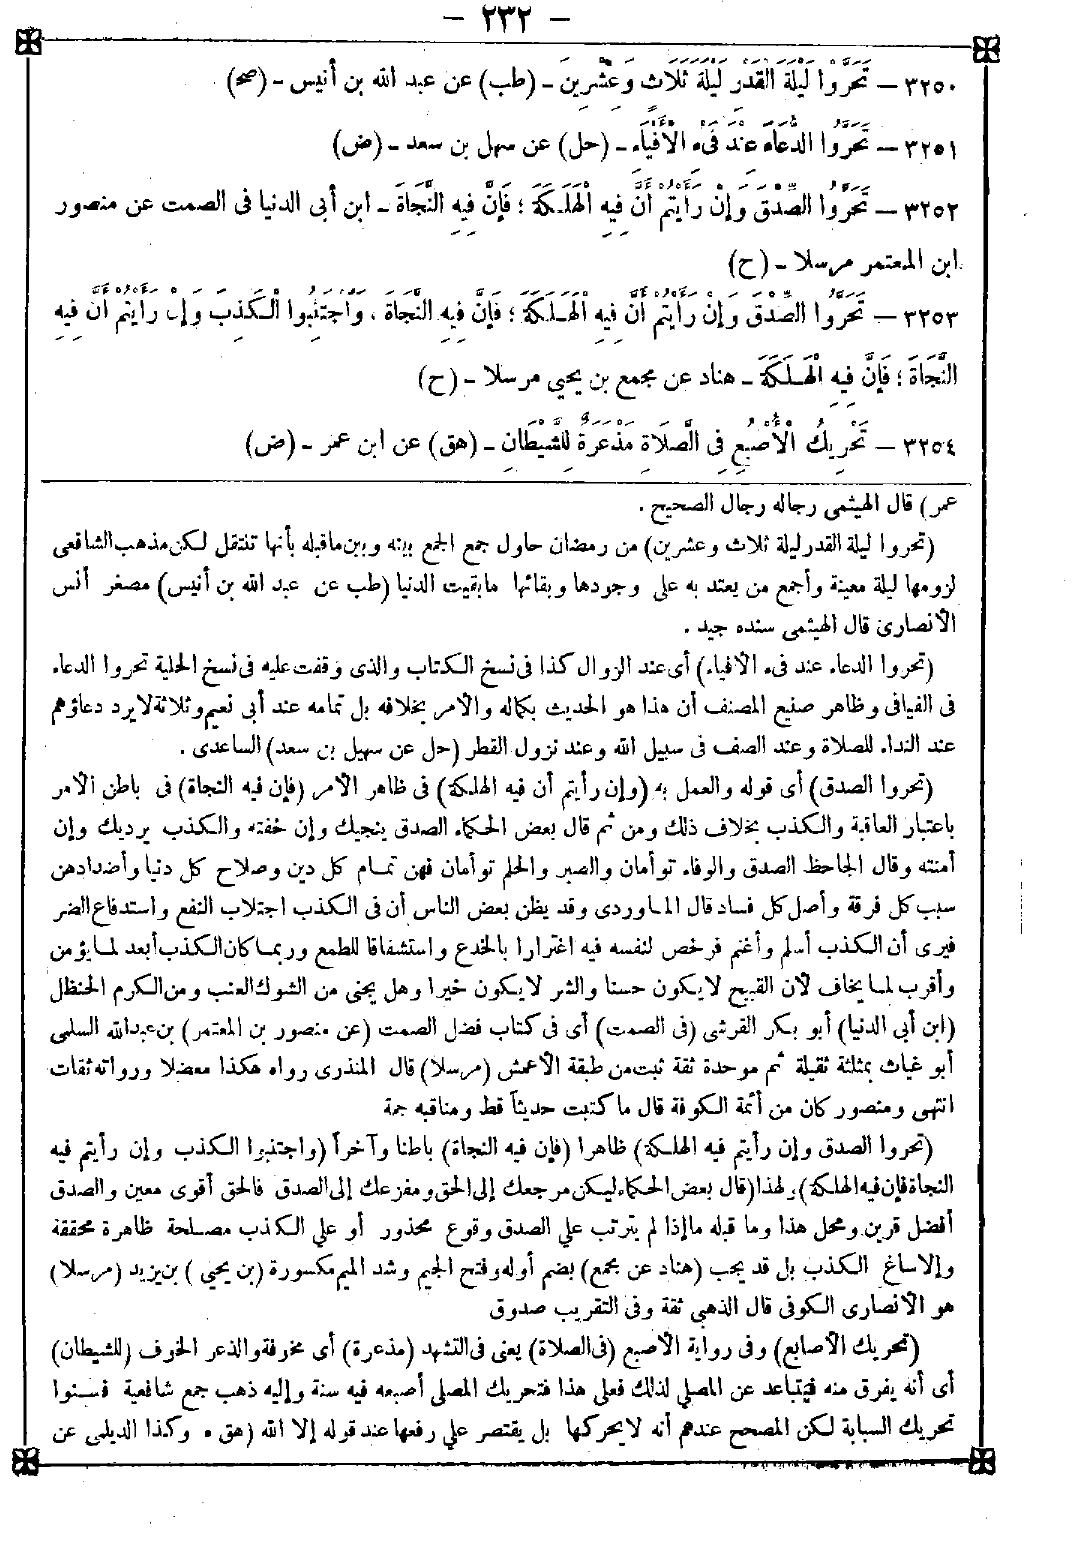 – ٢٣٢ –
٣٢٥٠ – تَحَرَّوْا لَيْلَةَ الْقَدْرِ لَيْلَةَ ثَلَاثٍ وَعِشْرِينَ – (طب) عن عبد الله بن أنيس – (صح)
٣٢٥١ – تَحَرَّوُا الدُّعَاءَ عِنْدَ فَيْءِ الْأَفْيَاءِ – (حل) عن سهل بن سعد – (ض)
٣٢٥٢ – تَحَرَّوُا الصِّدْقَ وَإِنْ رَأَيْتُمْ أَنَّ فِيهِ الْهَلَكَةَ ؛ فَإِنَّ فِيهِ النَّجَاةَ – ابن أبى الدنيا فى الصمت عن منصور
ابن المعتمر مرسلا – (ح)
٣٢٥٣ – تَحَرَّوُا الصِّدْقَ وَإِنْ رَأَيْتُمْ أَنَّ فِيهِ الْهَلَكَةَ ؛ فَإِنَّ فِيهِ النَّجَاةَ ، وَاجْتَنِبُوا الْكَذِبَ وَإِنْ رَأَيْتُمْ أَنَّ فِيهِ
النَّجَاةَ ؛ فَإِنَّ فِيهِ الْهَلَكَةَ – هناد عن مجمع بن يحيى مرسلا – (ح)
٣٢٥٤ – تَحْرِيكُ الْأُصْبُعِ فِى الصَّلَاةِ مَذْعَرَةٌ لِلشَّيْطَانِ – (هق) عن ابن عمر – (ض)
عمر) قال الهيثمى رجاله رجال الصحيح .
(تحروا ليلة القدر ليلة ثلاث وعشرين) من رمضان حاول جمع الجمع بينه وبين ماقبله بأنها تنتقل لكن مذهب الشافعى
لزومها ليلة معينة وأجمع من يعتد به على وجودها وبقائها مابقيت الدنيا (طب عن عبد الله بن أنيس) مصغر أنس
الأنصارى قال الهيثمى سنده جيد .
(تحروا الدعاء عند فىء الأفياء) أى عند الزوال كذا فى نسخ الكتاب والذى وقفت عليه فى نسخ الحلية تحروا الدعاء
فى الفيافى وظاهر صنيع المصنف أن هذا هو الحديث بكماله والأمر بخلافه بل تمامه عند أبى نعيم وثلاثة لا يرد دعاؤهم
عند النداء للصلاة وعند الصف فى سبيل الله وعند نزول القطر (حل عن سهيل بن سعد) الساعدى .
(تحروا الصدق) أى قوله والعمل به (وإن رأيتم أن فيه الهلكة) فى ظاهر الأمر (فإن فيه النجاة) فى باطن الأمر
باعتبار العاقبة والكذب بخلاف ذلك ومن ثم قال بعض الحكماء الصدق ينجيك وإن خفته والكذب يرديك وإن
أمنته وقال الجاحظ الصدق والوفاء توأمان والصبر والحلم توأمان فهن تمام كل دين وصلاح كل دنيا وأضدادهن
سبب كل فرقة وأصل كل فساد قال الماوردى وقد يظن بعض الناس أن فى الكذب اجتلاب النفع واستدفاع الضر
فيرى أن الكذب أسلم وأغنم فرخص لنفسه فيه اغترارا بالخدع واستشفافا للطمع وربما كان الكذب أبعد لما يؤمن
وأقرب لما يخاف لأن القبيح لايكون حسنا والشر لايكون خيرا وهل يجنى من الشوك العنب ومن الكرم الحنظل
(ابن أبى الدنيا) أبو بكر القرشى (فى الصمت) أى فى كتاب فضل الصمت (عن منصور بن المعتمر) بن عبدالله السلمى
أبو غياث بمثلثة ثقيلة ثم موحدة ثقة ثبت من طبقة الأعمش (مرسلا) قال المنذرى رواه هكذا معضلا ورواته ثقات
انتهى ومنصور كان من أئمة الكوفة قال ماكتبت حديثاً قط ومناقبه جمة
(تحروا الصدق وإن رأيتم فيه الهلكة) ظاهرا (فإن فيه النجاة) باطنا وآخراً (واجتنبوا الكذب وإن رأيتم فيه
النجاة فإن فيه الهلكة) ولهذا (قال بعض الحكماء ليكن مرجعك إلى الحق ومفزعك إلى الصدق فالحق أقوى معين والصدق
أفضل قرين ومحل هذا وما قبله ما إذا لم يترتب على الصدق وقوع محذور أو على الكذب مصلحة ظاهرة محققة
وإلا ساغ الكذب بل قد يجب (هناد عن مجمع) بضم أوله وفتح الجيم وشد الميم مكسورة (بن يحيى) بن يزيد (مرسلا)
هو الأنصارى الكوفى قال الذهبى ثقة وفى التقريب صدوق
(تحريك الأصابع) وفى رواية الأصبع (فى الصلاة) يعنى فى التشهد (مذعرة) أى مخرفة والذعر الخوف (للشيطان)
أى أنه يفرق منه فيتباعد عن المصلى لذلك فعلى هذا فتحريك المصلى أصبعه فيه سنة وإليه ذهب جمع شافعية فسنوا
تحريك السبابة لكن المصحح عندهم أنه لايحركها بل يقتصر على رفعها عند قوله إلا الله (هق ه وكذا الديلمى عن